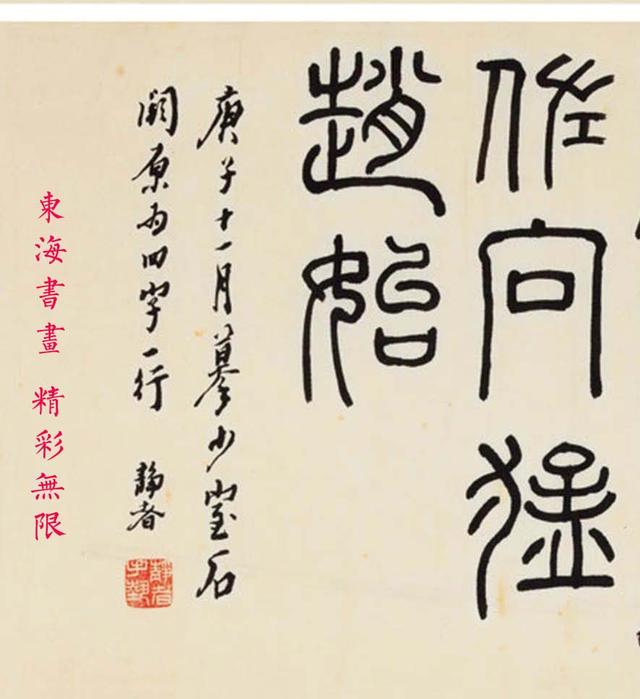 佐向猛
趙始
庚子十一月摹少室石
闕原为四字一行 靜者
東海書畫 精彩無限